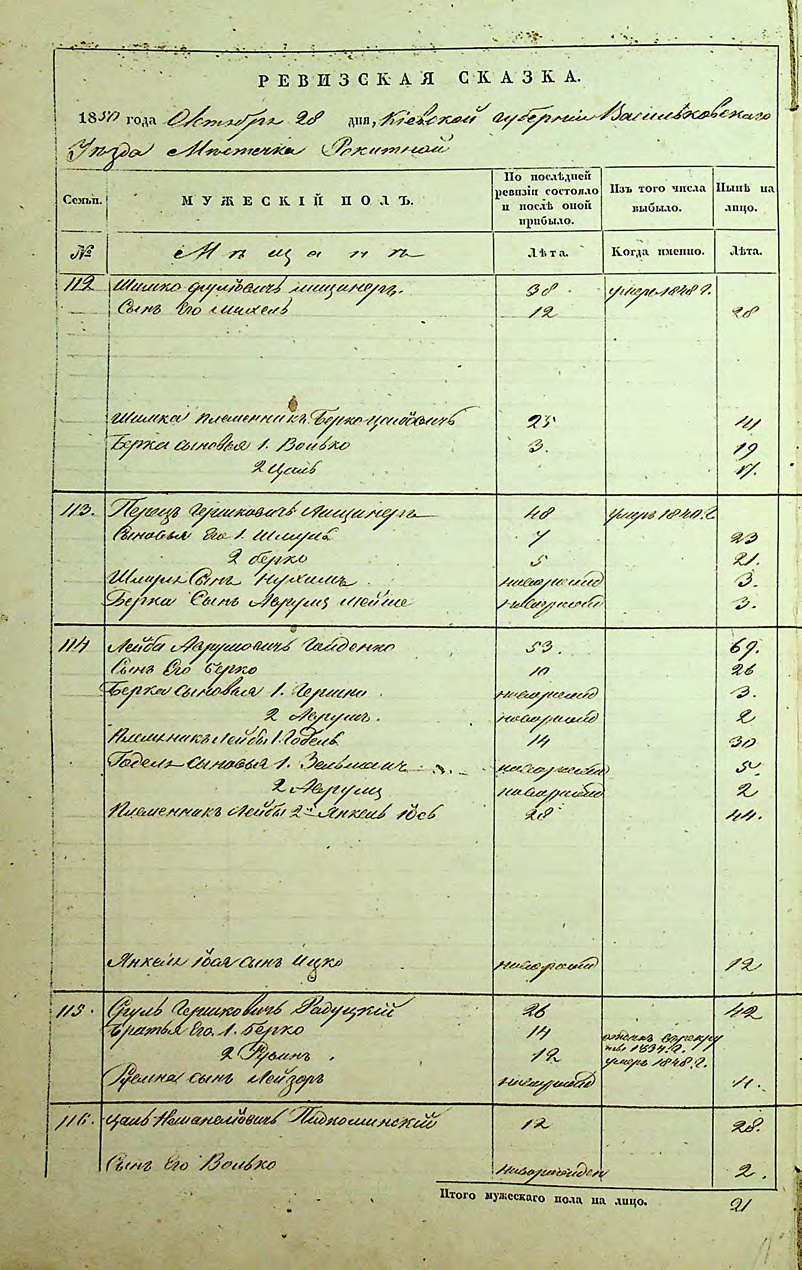 РЕВИЗСКАЯ СКАЗКА.
1850 года Октября 28 дня, Кіевской губерніи Васильковскаго
Уѣзда Мѣстечка Рокитной
Семьи. МУЖЕСКІЙ ПОЛЪ. По послѣдней ревизіи состояло и послѣ оной прибыло. Изъ того числа выбыло. Нынѣ на лицо.
№ Мѣщанъ Лѣта. Когда именно. Лѣта.
112 Шимко Сруліовичъ 38 умеръ 1848 г.
Сынъ Его Михель 12 28
Шимка племенникъ Берко 25 41
Берка сыновья 1. Волько 3. 19
2 Цаль 17.
113. Перецъ Гершковичъ 48 умеръ 1840. г
Сыновья Его 1. Шмуль 7 23
2 берко 5 21.
Шмуля Сынъ Нухимъ новорожд 3.
Берка Сынъ Аврумъ Мейше новорожд 3.
114 Лейба Аврумовичъ Гайденко 53. 69.
Сынъ Его Берко 10 26
Берка Сыновья 1. новорожд 3.
2 Аврумъ. новорожд 2
Племенникъ Лейбы 1. Годель 14 30
Годеля Сыновья 1. Зельманъ новорожд 5.
2 Аврумъ новорожд 2
Племенникъ Лейбы 2й Янкель Іось 28 44.
Янкеля Іося сынъ Ицко новорожд 12
115. Сруль Гершковичъ Радуцкій 26 42
Братья Его. 1. Берко 14 1834. г.
2 Рувинъ. 12 умеръ 1848. г.
Рувина сынъ Лейзоръ новорожд 11.
116. Цаль 12 28.
Сынъ Его Волько новорожден 2.
Итого мужескаго пола на лицо. 21